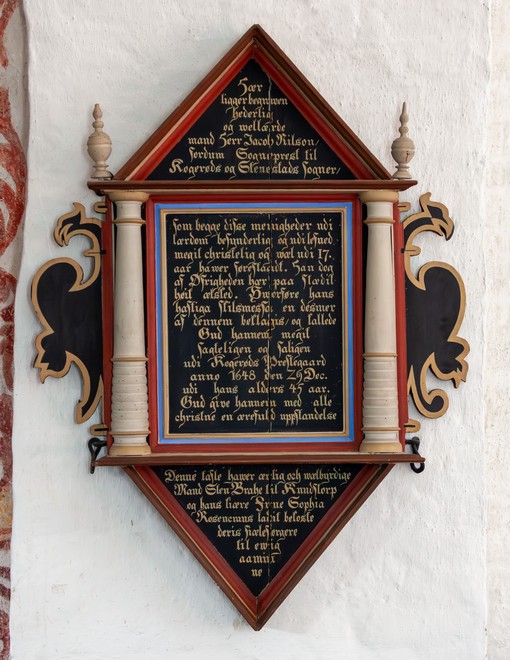 Hær
ligger begrawen
hederlig
og wellærde
mand Herr Jacob Nilson/
fordum Sogneprest til
Kogerøds og Stenestads sogner/
som begge disse menigheder udi
lærdom besunderlig og udi lefned
megit christelig og wæl udi 17.
aar hawer forestandt. San dog
af Øfrigheden her paa stædit
heit ælsted. Hwerføre hans
hastige
af dennem beklagis/og kallede
Gud hannem megit
sagteligen og saligen
udi Kogerøds Prestegaard
anno 1648 den 29 Dec.
udi hans alders 45 aar.
Gud give hannem med alle
christne en ærefuld opstandelse
Denne tafle hawer ærlig og wælburdige
Mand Sten Brahe til Knudstorp
og hans kiære Frue Sophia
Rosencrans ladit bekoste
deris siælesørgere
til ewig
aamin
ne